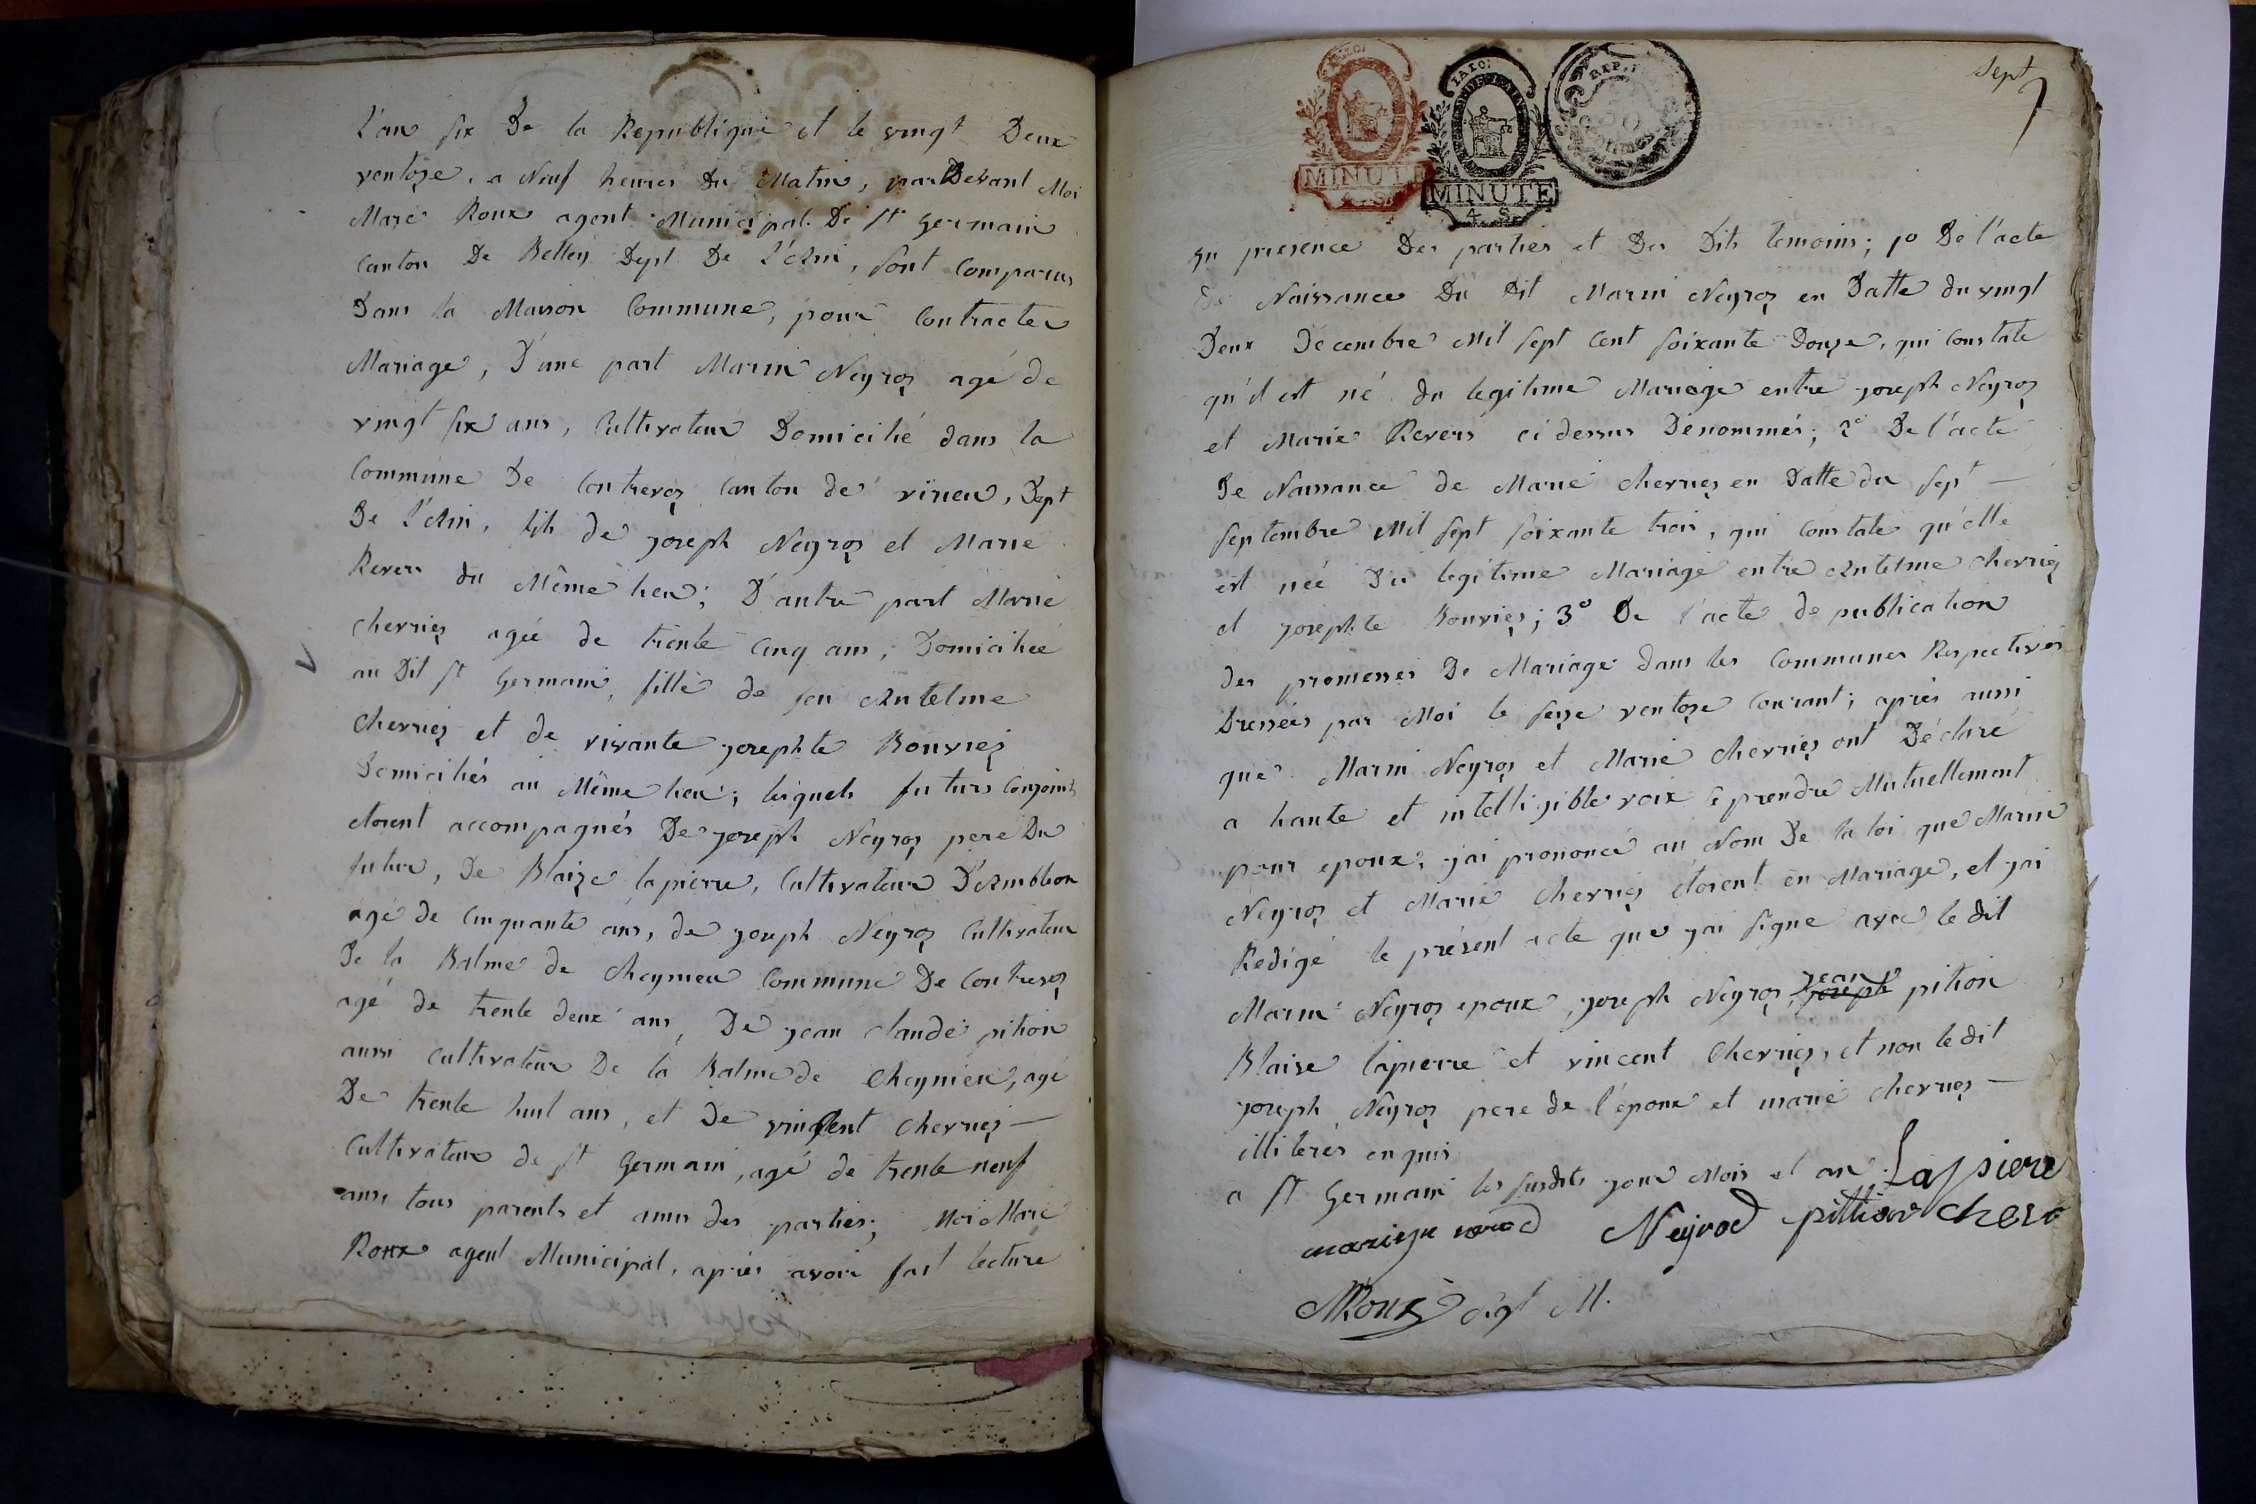 L'an six De la Republique et le vingt Deux
ventôse, a Neuf heures Du Matin, par Devant Moi
Marc Roux agent Municipal De St Germain
Canton De Belley Dept De L'Ain, sont comparus
Dans la Maison Commune, pour Contracter
Mariage, D'une part Marin Neyroz agé de
vingt six ans, Cultivateur Domicilié dans la
Commune De Contrevoz Canton de virieu, Dept
De L'Ain, fils de joseph Neyroz et Marie
Revers du Même lieu; D'autre part Marie
cherviez agée de trente Cinq ans, Domiciliée
au Dit St Germain, fille de feu Antelme
Cherviez et de vivante josephte Bouvriez
Domiciliés au Même lieu; lesquels futurs Conjoints
etoient accompagnés De joseph Neyroz pere Du
futur, De Blaize lapierre, Cultivateur D'Ambleon
agé de Cinquante ans, de joseph Neyroz Cultivateur
De la Balme de cheynieu Commune De Contrevoz
agé de trente deux ans, De jean claude pition
aussi Cultivateur De la Balme de Cheynieu, agé
De trente huit ans, et De vincent cherviez –
Cultivateur de St Germain, agé de trente neuf
ans, tous parents et amis des parties; Moi Marc
Roux agent Municipal, après avoir fait lecture
sept
7
LA LOI
MINUTE
LA LOI
MINUTE
4. S.
REP.
50
Centimes
En presence Des parties et Des Dits temoins; 1o De l'acte
De Naissance Du Dit Marin Neyroz en Datte du vingt
Deux Decembre Mil sept Cent soixante Douze, qui constate
qu'il est né du legitime Mariage entre joseph Neyroz
et Marie Revers ci dessus Dénommés; 2o De l'acte
De Naissance de Marie cherviez en Datte du sept –
septembre Mil sept soixante trois, qui constate qu'elle
est née Du legitime Mariage entre Antelme cherviez
et josephte Bouvriez; 3o De l'acte de publication
des promesses De Mariage dans les Communes Respectives
Dressées par Moi le seize ventose Courant; après aussi
que Marin Neyroz et Marie cherviez ont Déclaré
a haute et intelligible voix se prendre Mutuellement
pour epoux, j'ai prononcé au Nom De la loi que Marin
Neyroz et Marie Cherviez étoient en Mariage, et j'ai
Redigé le présent acte que j'ai signe avec le dit
Marin Neyroz epoux, joseph Neyroz, joseph jean pition
Blaise lapierre et vincent Cherviez, et non le dit
joseph Neyroz pere de l'époux et marie cherviez –
illiterés enquis
a St Germain les susdits jour Mois et an. Lapiere
Neyrod pittion cherv
MRoux Agt M.